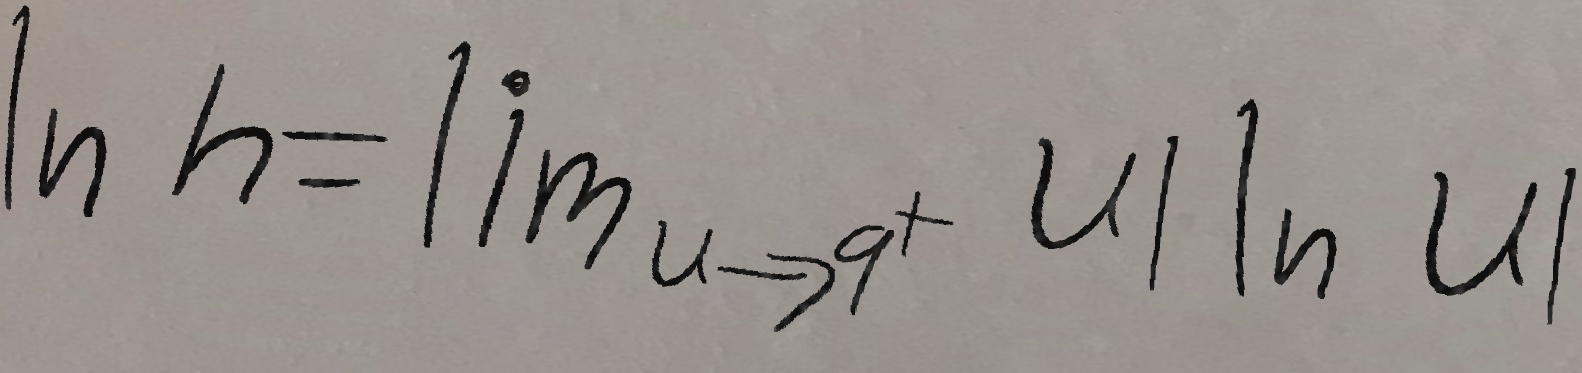 ln h = lim u→9⁺ u| ln u|